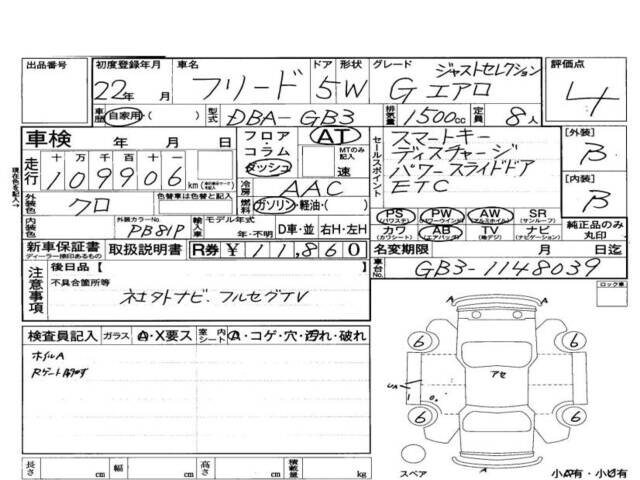 出品番号 初度登録年月 車名 ドア 形状 グレード 評価点
22年 月 フリード 5 W Gエアロ ジャストセレクション 4
車歴 自家用・( ) 型式 DBA-GB3 排気量 1500cc 定員 8人
車検 年 月 日 フロア コラム ダッシュ AT MTのみ記入 速
セールスポイント スマートキー
ディスチャージ
パワースライドドア
ETC
[外装] B
[内装] B
走行 十 万 千 百 十 一
109906 km
冷房 AAC
燃料 ガソリン・軽油・( )
外装色 クロ 色替車は色替と記入
内装色 外装カラーNo. PB81P 輸入車 モデル年式 年・不明 D車・並 右H・左H
PS (パワステ) PW (パワーウインド) AW (アルミホイル) SR (サンルーフ)
カワ (カワシート) AB (エアバッグ) TV (地デジ) ナビ (ナビゲーション)
純正品のみ丸印
現在色を記入→
新車保証書 ディーラー捺印あるもの 取扱説明書 R券 ¥11,860 名変期限 月 日迄
車台No. GB3-1148039
注意事項 後日品【 】
不具合箇所等
社外ナビ. フルセグTV
ロック車
検査員記入 ガラス A・X要ス 室内シート A・コゲ・穴・汚れ・破れ
ホイルA
6 6
アセ
UA 1
6 6
A
長さ cm 幅 cm 高さ cm 積載量 kg
スペア 小A有・小U有